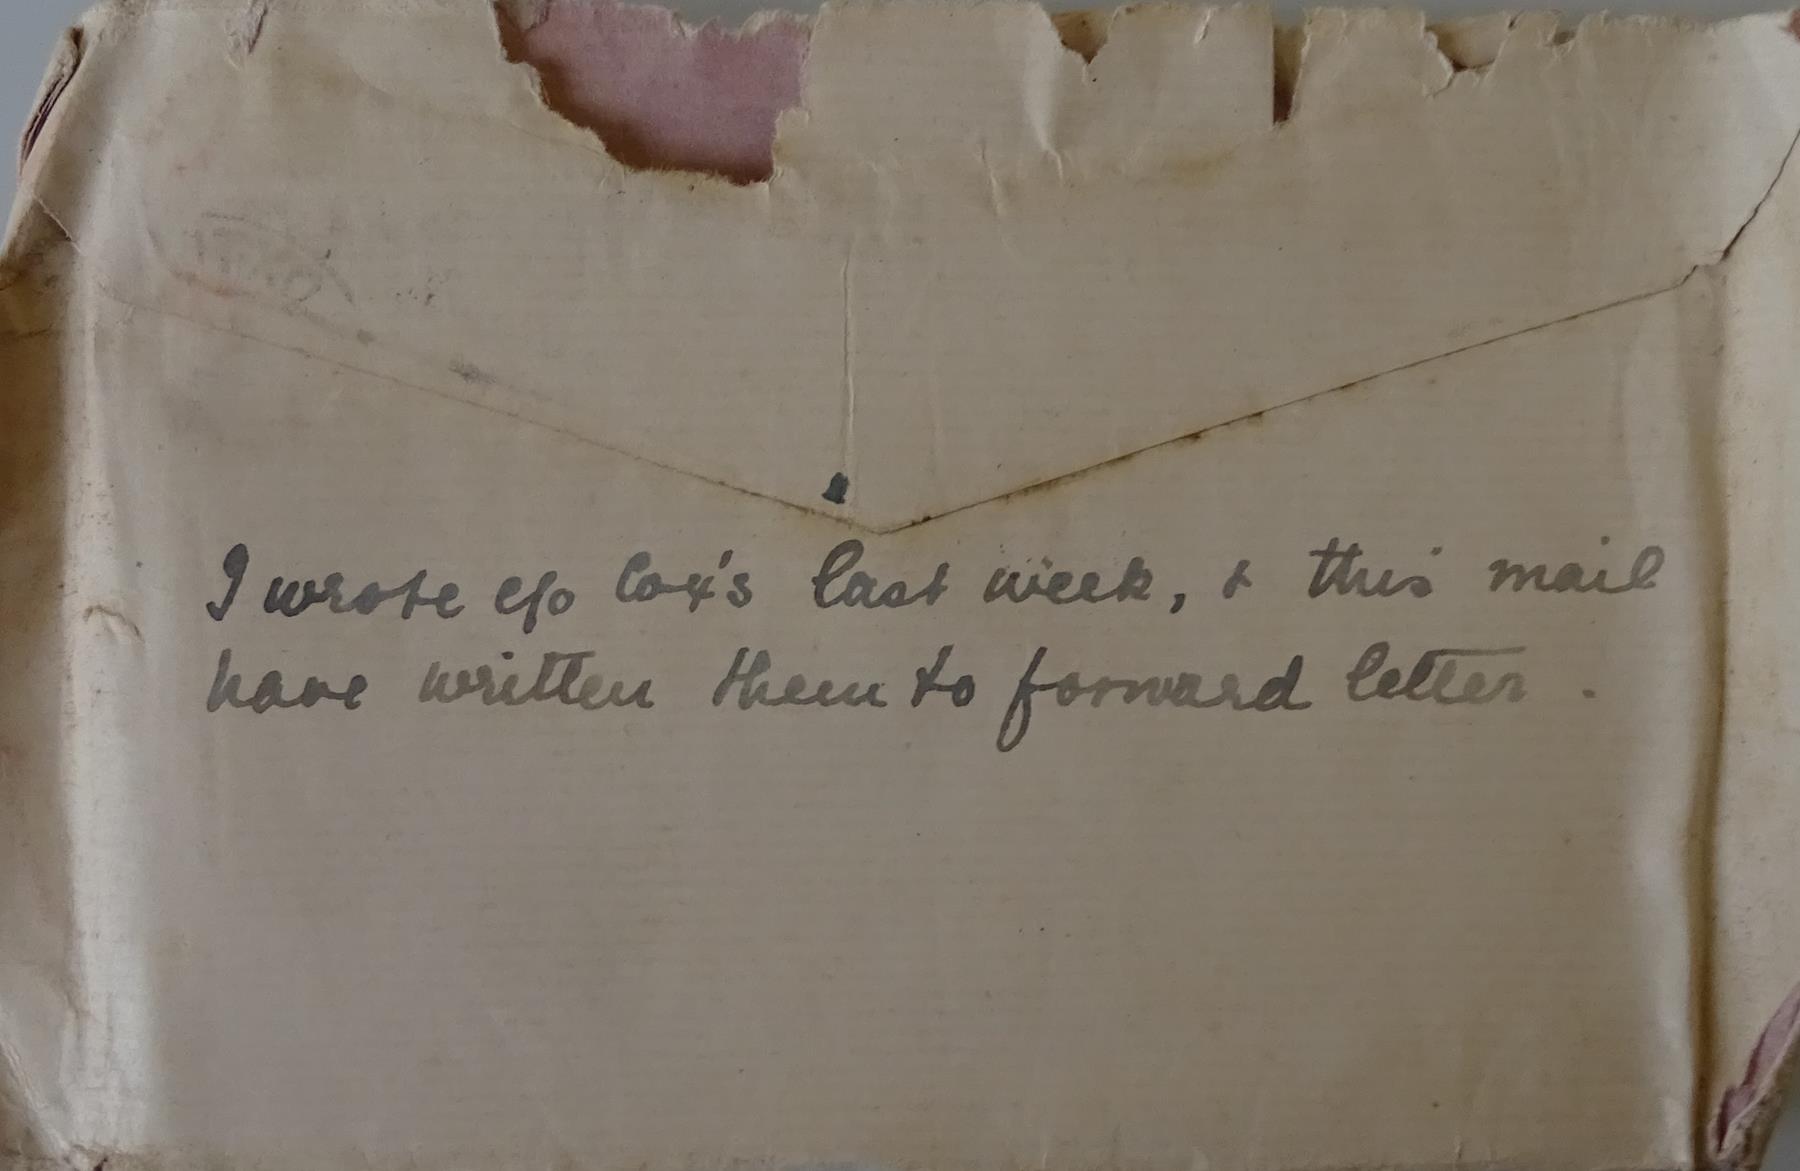 I wrote c/o Cox's last week, & this mail
have written them to forward letter.